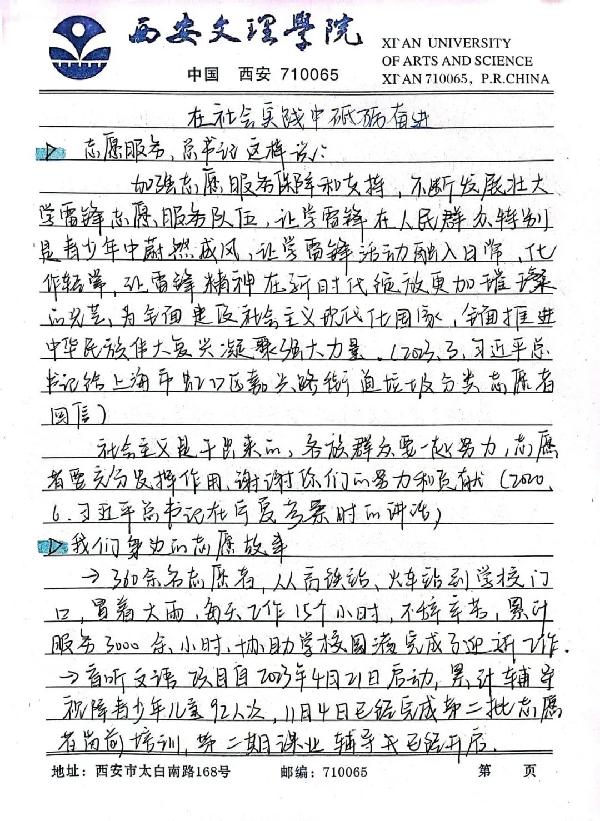 西安文理学院
XI'AN UNIVERSITY
OF ARTS AND SCIENCE
中国 西安 710065
XI'AN 710065, P.R.CHINA
在社会实践中砥砺奋进
志愿服务,总书记这样说:
加强志愿服务保障和支持,不断发展壮大
学雷锋志愿服务队伍,让学雷锋在人民群众特别
是青少年中蔚然成风,让学雷锋活动融入日常、化
作经常,让雷锋精神在新时代绽放更加璀璨
的光芒,为全面建设社会主义现代化国家,全面推进
中华民族伟大复兴凝聚强大力量.(2023.3,习近平总
书记给上海市虹口区嘉兴路街道垃圾分类志愿者
回信)
社会主义是干出来的,各族群众要一起努力,志愿
者要充分发挥作用,谢谢你们的努力和贡献(2020,
6.习近平总书记在宁夏考察时的讲话)
我们身边的志愿故事
→360余名志愿者,从高铁站、火车站到学校门
口,冒着大雨,每天工作15个小时,不辞辛苦,累计
服务3000余小时,协助学校圆满完成了迎新工作.
→音听文语项目自2023年4月21日启动,累计辅导
视障青少年儿童92人次,11月4日已经完成第二批志愿
者岗前培训,第二期课业辅导也已经开启.
地址:西安市太白南路168号 邮编:710065 第 页